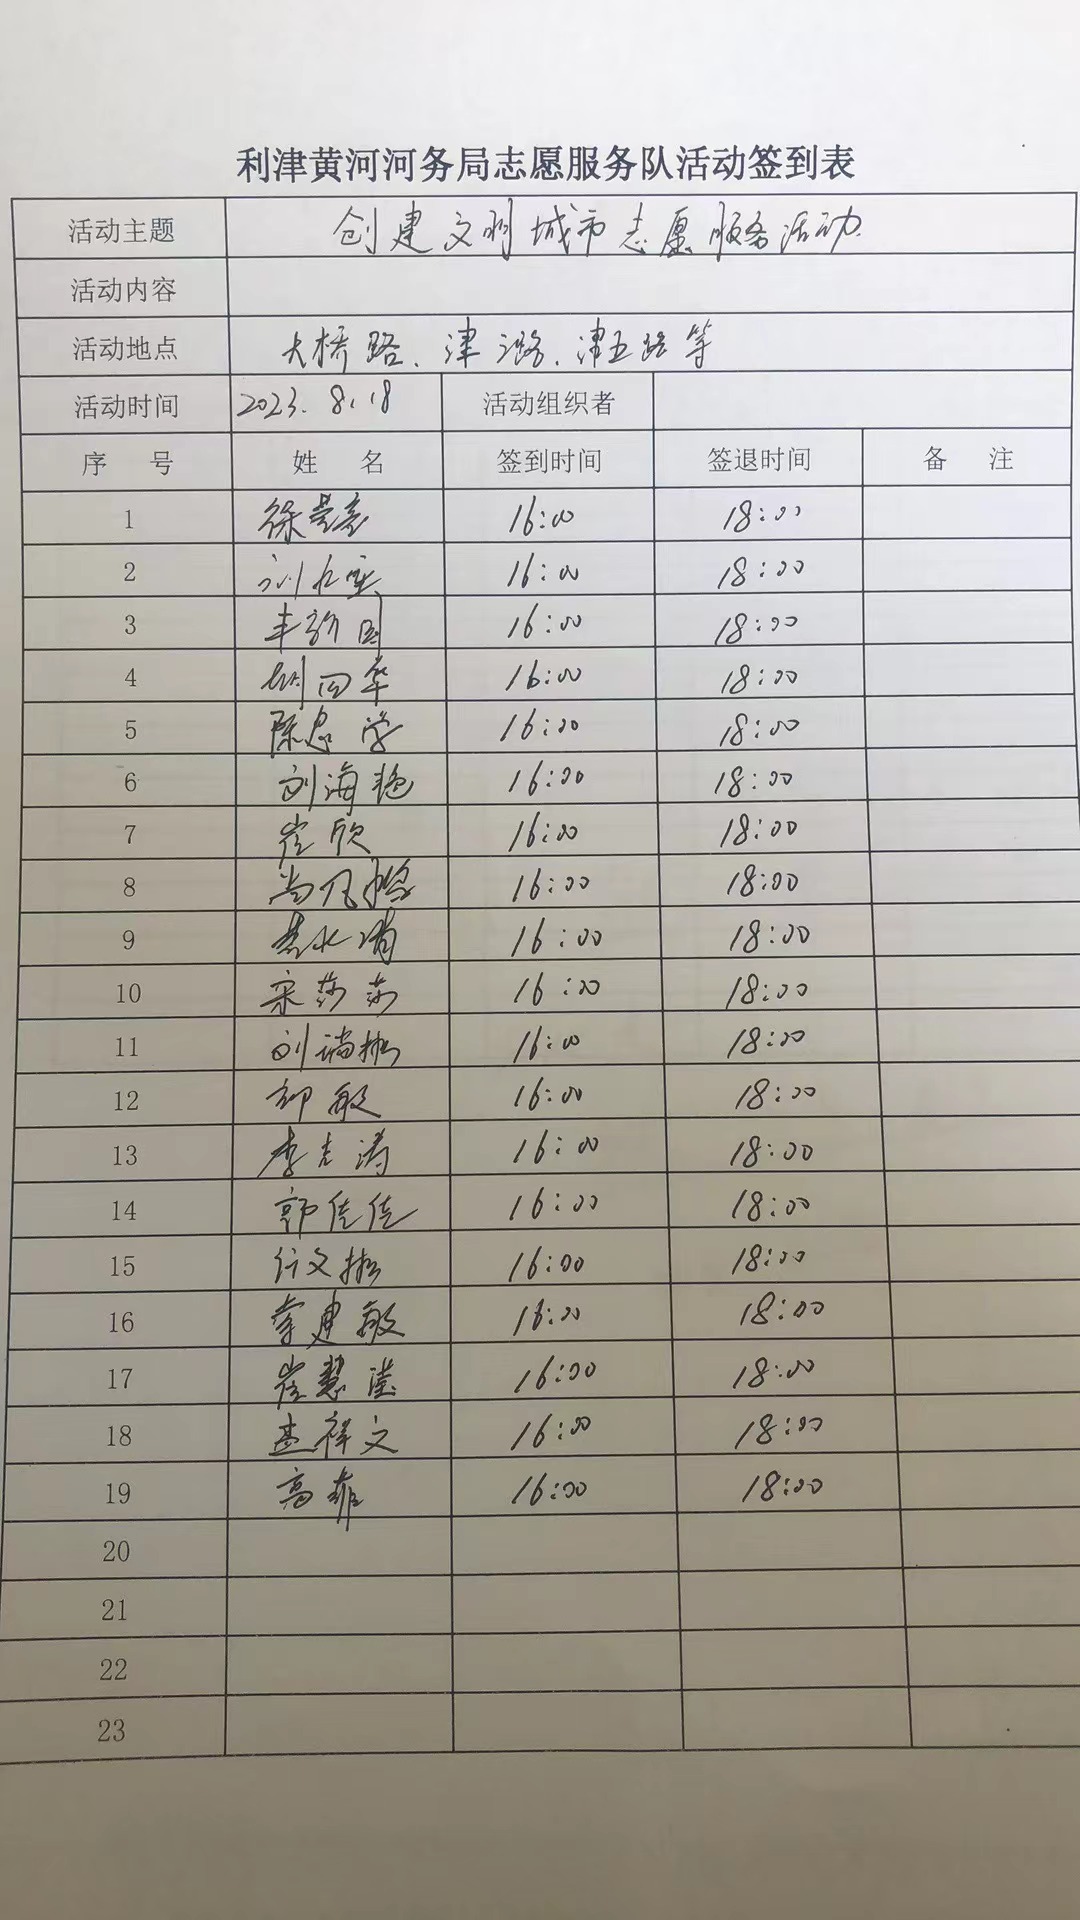 利津黄河河务局志愿服务队活动签到表
活动主题 创建文明城市志愿服务活动
活动内容
活动地点 大桥路、津二路、津五路等
活动时间 2023.8.18 活动组织者
序号 姓名 签到时间 签退时间 备注
1 徐 16:00 18:00
2 刘 16:00 18:00
3 丰 国 16:00 18:00
4 四华 16:00 18:00
5 陈忠学 16:00 18:00
6 刘海艳 16:00 18:00
7 崔欣 16:00 18:00
8 尚凡 16:00 18:00
9 水清 16:00 18:00
10 宋莎莎 16:00 18:00
11 刘瑞振 16:00 18:00
12 敏 16:00 18:00
13 李克涛 16:00 18:00
14 郭佳佳 16:00 18:00
15 文振 16:00 18:00
16 李建敏 16:00 18:00
17 崔慧滢 16:00 18:00
18 祥文 16:00 18:00
19 高菲 16:00 18:00
20
21
22
23